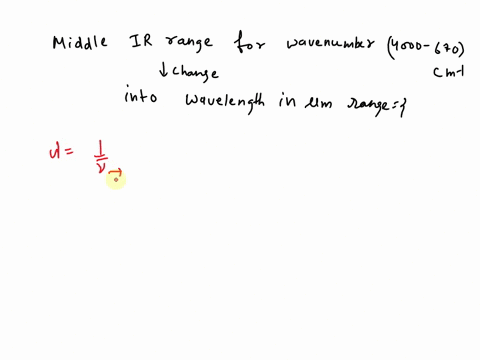 Middle IR range for wavenumber (4000-670)
↓ change cm-1
into wavelength in um range=?
λ = 1/ν̅ →